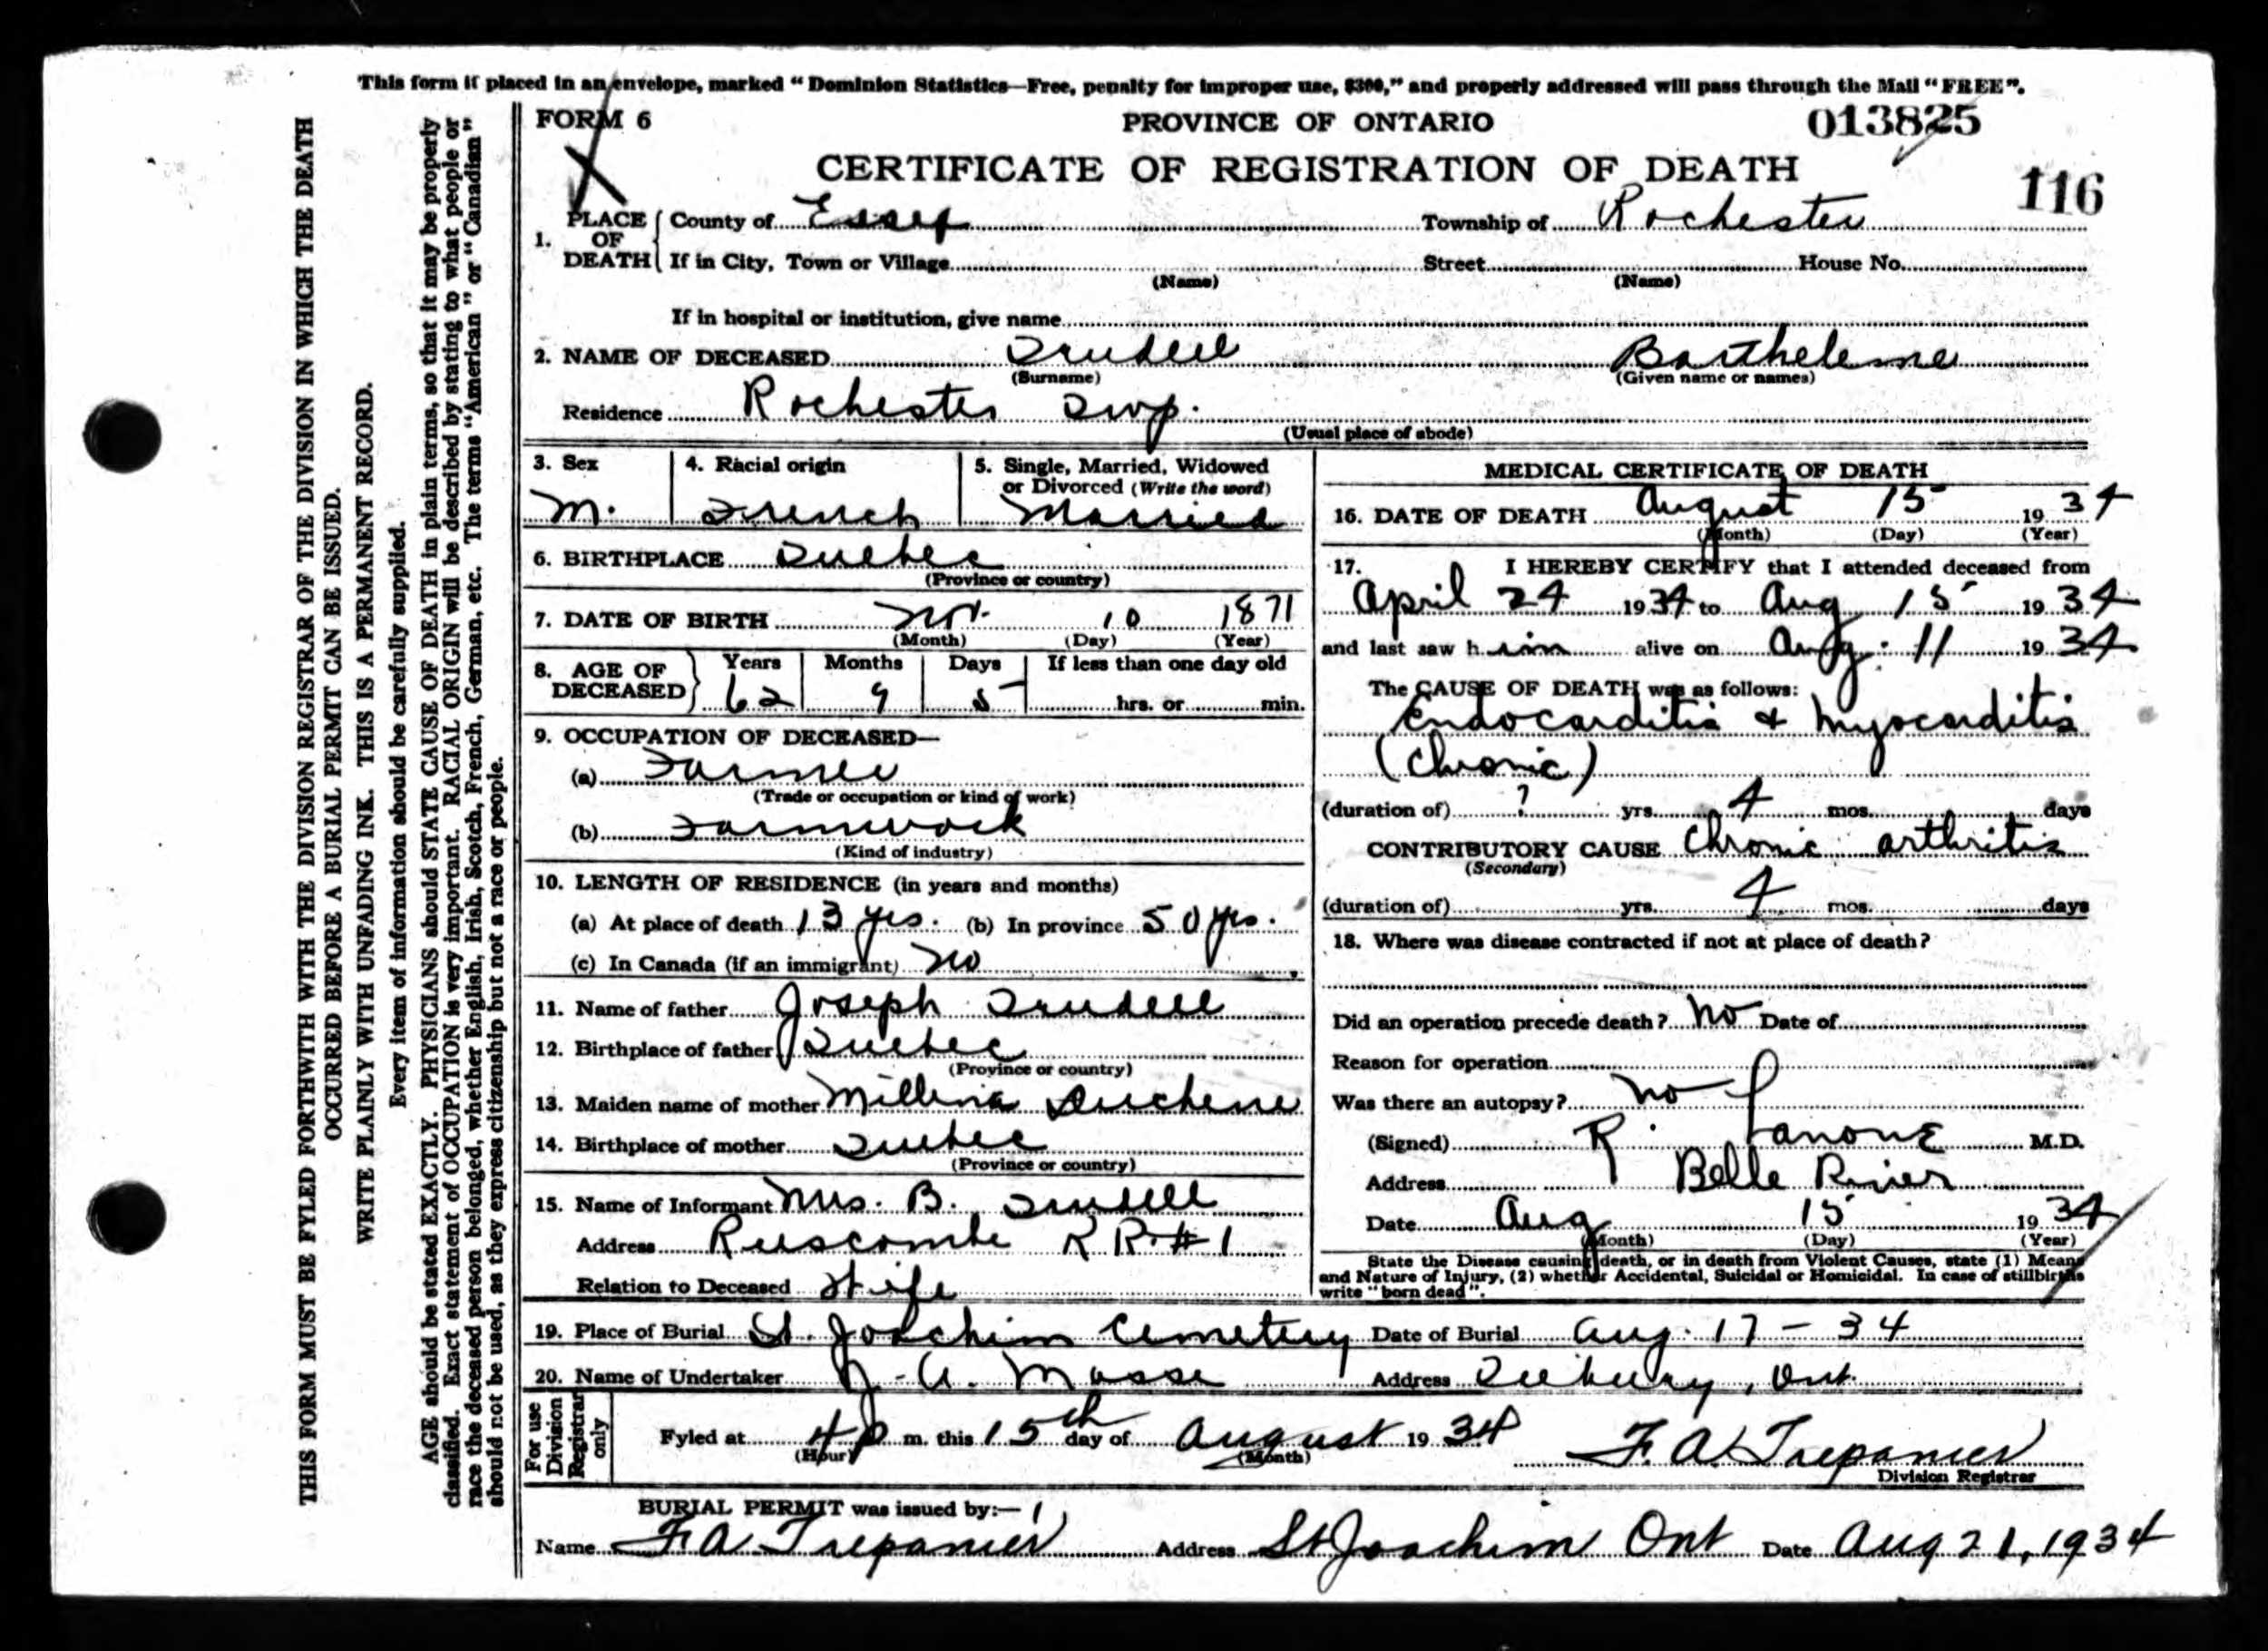 This form if placed in an envelope, marked "Dominion Statistics—Free, penalty for improper use, $300," and properly addressed will pass through the Mail "FREE".
FORM 6 PROVINCE OF ONTARIO 013825
CERTIFICATE OF REGISTRATION OF DEATH 116
1. PLACE OF DEATH { County of Essex Township of Rochester
If in City, Town or Village Street House No.
(Name) (Name)
If in hospital or institution, give name
2. NAME OF DECEASED Trudell Bartheleme
(Surname) (Given name or names)
Residence Rochester Twp.
(Usual place of abode)
3. Sex 4. Racial origin 5. Single, Married, Widowed
or Divorced (Write the word)
M. French Married
6. BIRTHPLACE Quebec
(Province or country)
7. DATE OF BIRTH Nov. 10 1871
(Month) (Day) (Year)
8. AGE OF DECEASED } Years Months Days If less than one day old
62 9 5 hrs. or min.
9. OCCUPATION OF DECEASED—
(a) Farmer
(Trade or occupation or kind of work)
(b) Farmwork
(Kind of industry)
10. LENGTH OF RESIDENCE (in years and months)
(a) At place of death 13 yrs. (b) In province 50 yrs.
(c) In Canada (if an immigrant) no
11. Name of father Joseph Trudell
12. Birthplace of father Quebec
(Province or country)
13. Maiden name of mother Millena Duchene
14. Birthplace of mother Quebec
(Province or country)
15. Name of Informant Mrs. B. Trudell
Address Ruscombe R R. # 1
Relation to Deceased Wife
MEDICAL CERTIFICATE OF DEATH
16. DATE OF DEATH August 15 1934
(Month) (Day) (Year)
17. I HEREBY CERTIFY that I attended deceased from
April 24 1934 to Aug 15 1934
and last saw him alive on Aug. 11 1934
The CAUSE OF DEATH was as follows:
Endocarditis & Myocarditis
(Chronic)
(duration of) ? yrs. 4 mos. days
CONTRIBUTORY CAUSE Chronic arthritis
(Secondary)
(duration of) yrs. 4 mos. days
18. Where was disease contracted if not at place of death?
Did an operation precede death? No Date of
Reason for operation
Was there an autopsy? no
(Signed) R. Lanoue M.D.
Address Belle River
Date Aug 15 1934
(Month) (Day) (Year)
State the Disease causing death, or in death from Violent Causes, state (1) Means
and Nature of Injury, (2) whether Accidental, Suicidal or Homicidal. In case of stillbirths
write "born dead".
19. Place of Burial St. Joachim Cemetery Date of Burial Aug. 17 - 34
20. Name of Undertaker J. A. Masse Address Tilbury, Ont.
For use Division Registrar only
Fyled at 4 p m. this 15th day of August 1934 F. A. Trepanier
(Hour) (Month) Division Registrar
BURIAL PERMIT was issued by:—
Name F A Trepanier Address St Joachim Ont Date Aug 21, 1934
THIS FORM MUST BE FYLED FORTHWITH WITH THE DIVISION REGISTRAR OF THE DIVISION IN WHICH THE DEATH
OCCURRED BEFORE A BURIAL PERMIT CAN BE ISSUED.
WRITE PLAINLY WITH UNFADING INK. THIS IS A PERMANENT RECORD.
Every item of information should be carefully supplied.
AGE should be stated EXACTLY. PHYSICIANS should STATE CAUSE OF DEATH in plain terms, so that it may be properly
classified. Exact statement of OCCUPATION is very important. RACIAL ORIGIN will be described by stating to what people or
race the deceased person belonged, whether English, Irish, Scotch, French, German, etc. The terms "American" or "Canadian"
should not be used, as they express citizenship but not a race or people.